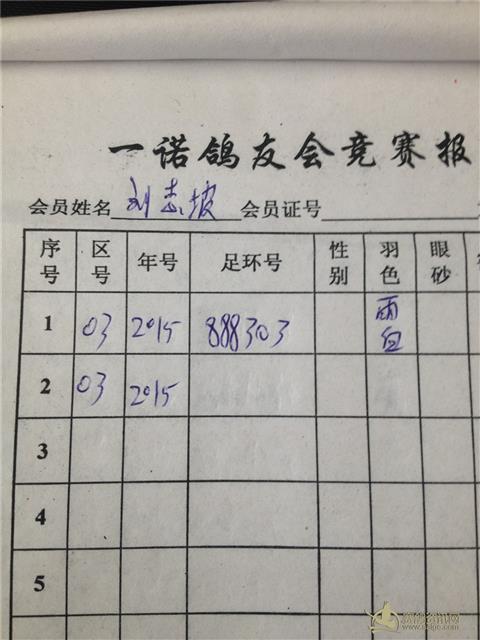 一诺鸽友会竞赛报
会员姓名 刘志坡 会员证号
序号 区号 年号 足环号 性别 羽色 眼砂
1 03 2015 888303 雨白
2 03 2015
3
4
5